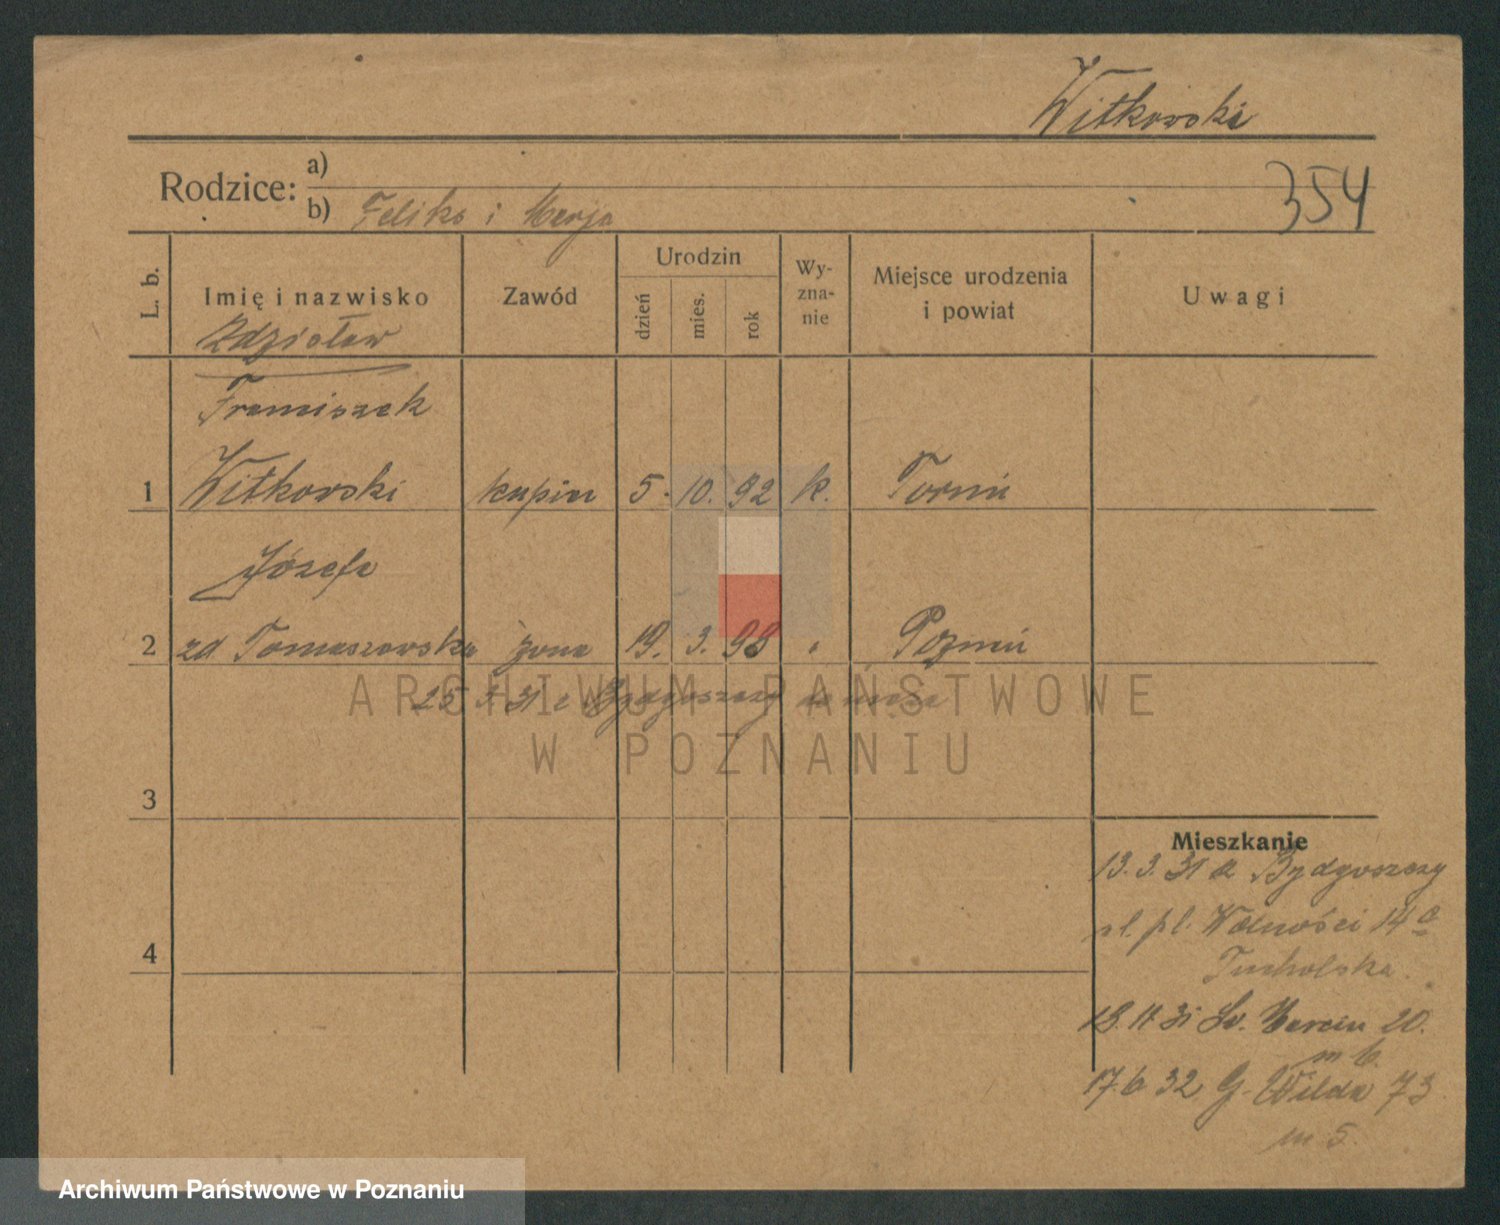 Witkowski
354
Rodzice: a)
b) Feliks i Marja
L. b.
Imię i nazwisko
Zawód
Urodzin
dzień
mies.
rok
Wy-
zna-
nie
Miejsce urodzenia
i powiat
Uwagi
Zdzisław
Franciszek
1 Witkowski kupiec 5. 10. 92 k. Toruń
Józefa
2 zd Tomaszewska żona 19. 3. 98 " Poznań
25 3 31 z Bydgoszczy
3
4
Mieszkanie
13. 3. 31 z Bydgoszczy
pl. Wolności 14a
Tucholska.
18. 11 31 Św. Marcin 20.
m 6.
17. 6 32 G. Wilda 73
m 5.
ARCHIWUM PAŃSTWOWE
W POZNANIU
Archiwum Państwowe w Poznaniu